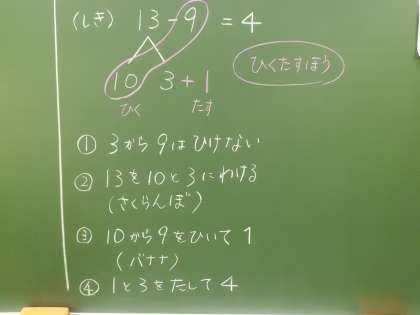 (しき) 13-9 =4
10 3+1
ひく たす
ひくたすほう
① 3から9はひけない
② 13を10と3にわける
(さくらんぼ)
③ 10から9をひいて1
(バナナ)
④ 1と3をたして4